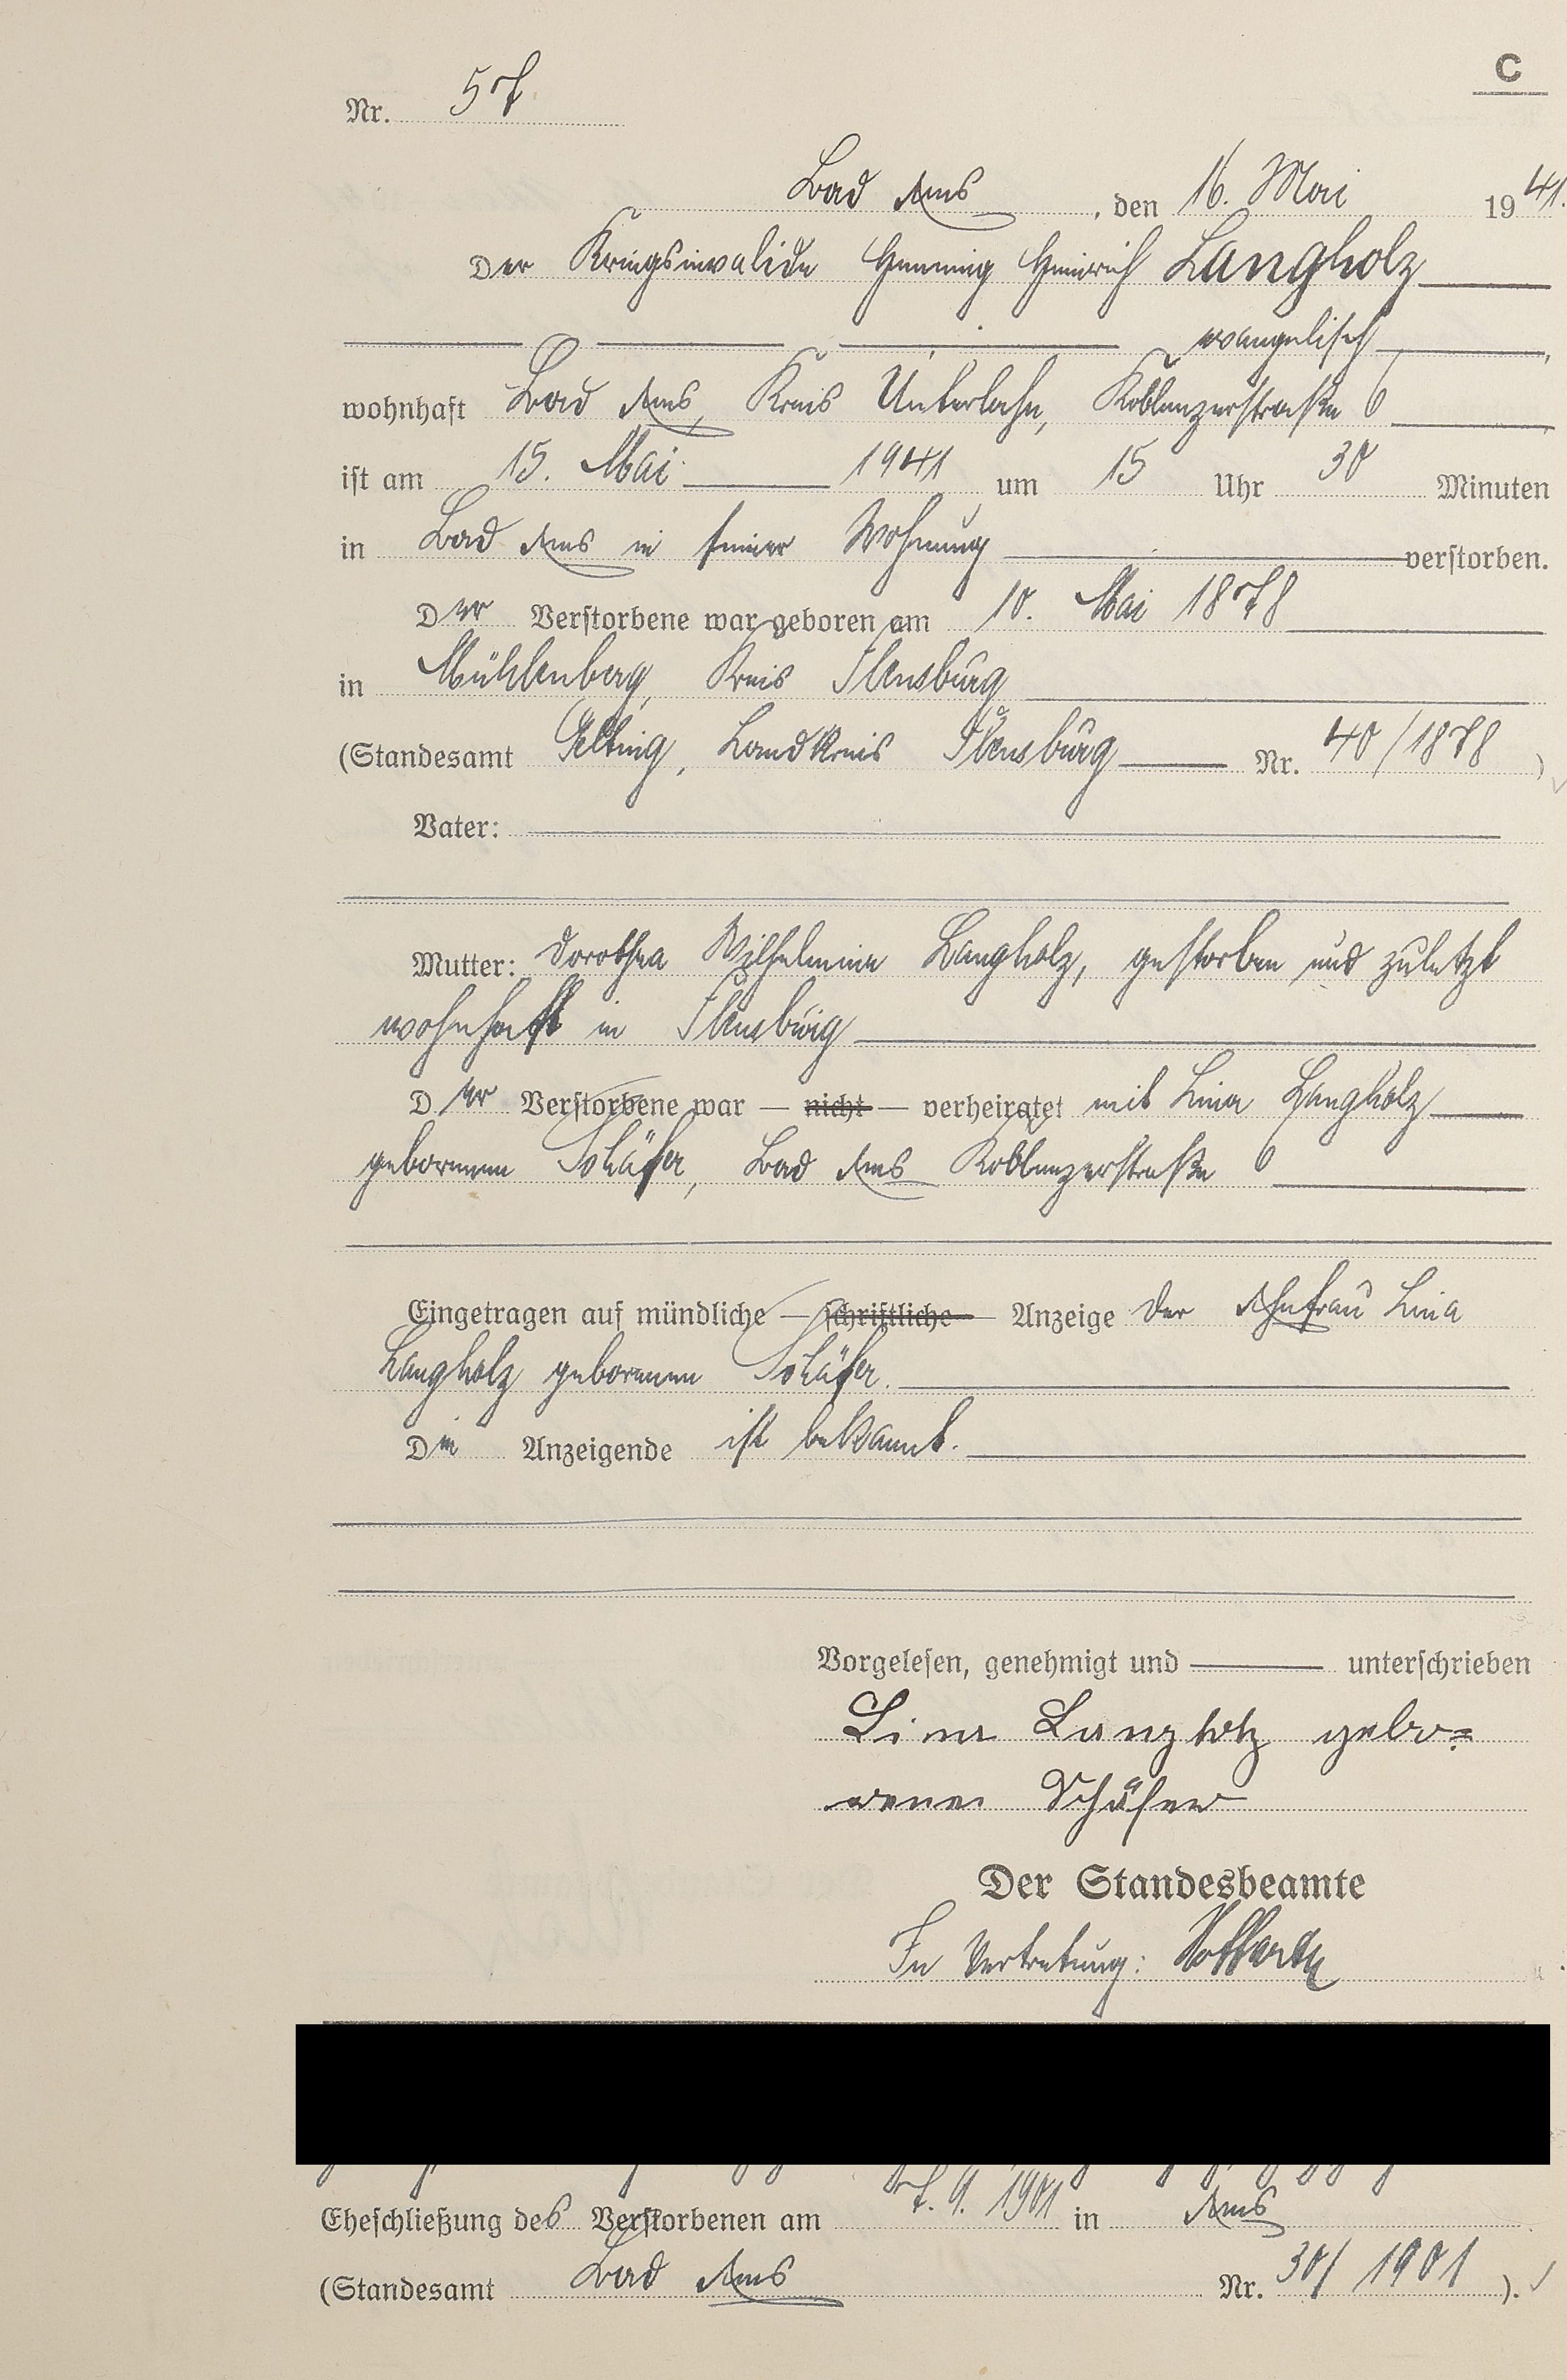 C
Nr. 57
Bad Ems, den 16. Mai 1941.
Der Kriegsinvalide Henning Heinrich Langholz
evangelisch,
wohnhaft Bad Ems, Kreis Unterlahn, Koblenzerstraße 6
ist am 15. Mai 1941 um 15 Uhr 30 Minuten
in Bad Ems in seiner Wohnung verstorben.
Der Verstorbene war geboren am 10. Mai 1878
in Mühlenberg, Kreis Flensburg
(Standesamt Gelting, Landkreis Flensburg Nr. 40/1878)
Vater:
Mutter: Dorothea Wilhelmine Langholz, gestorben und zuletzt
wohnhaft in Flensburg
Der Verstorbene war — nicht — verheiratet mit Lina Langholz
geborenen Schäfer, Bad Ems Koblenzerstraße 6
Eingetragen auf mündliche — schriftliche — Anzeige der Ehefrau Lina
Langholz geborenen Schäfer.
Die Anzeigende ist bekannt.
Vorgelesen, genehmigt und unterschrieben
Lina Langholz gebo=
rene Schäfer
Der Standesbeamte
In Vertretung:
Eheschließung des Verstorbenen am 7. 9. 1901 in Ems
(Standesamt Bad Ems Nr. 30/1901).